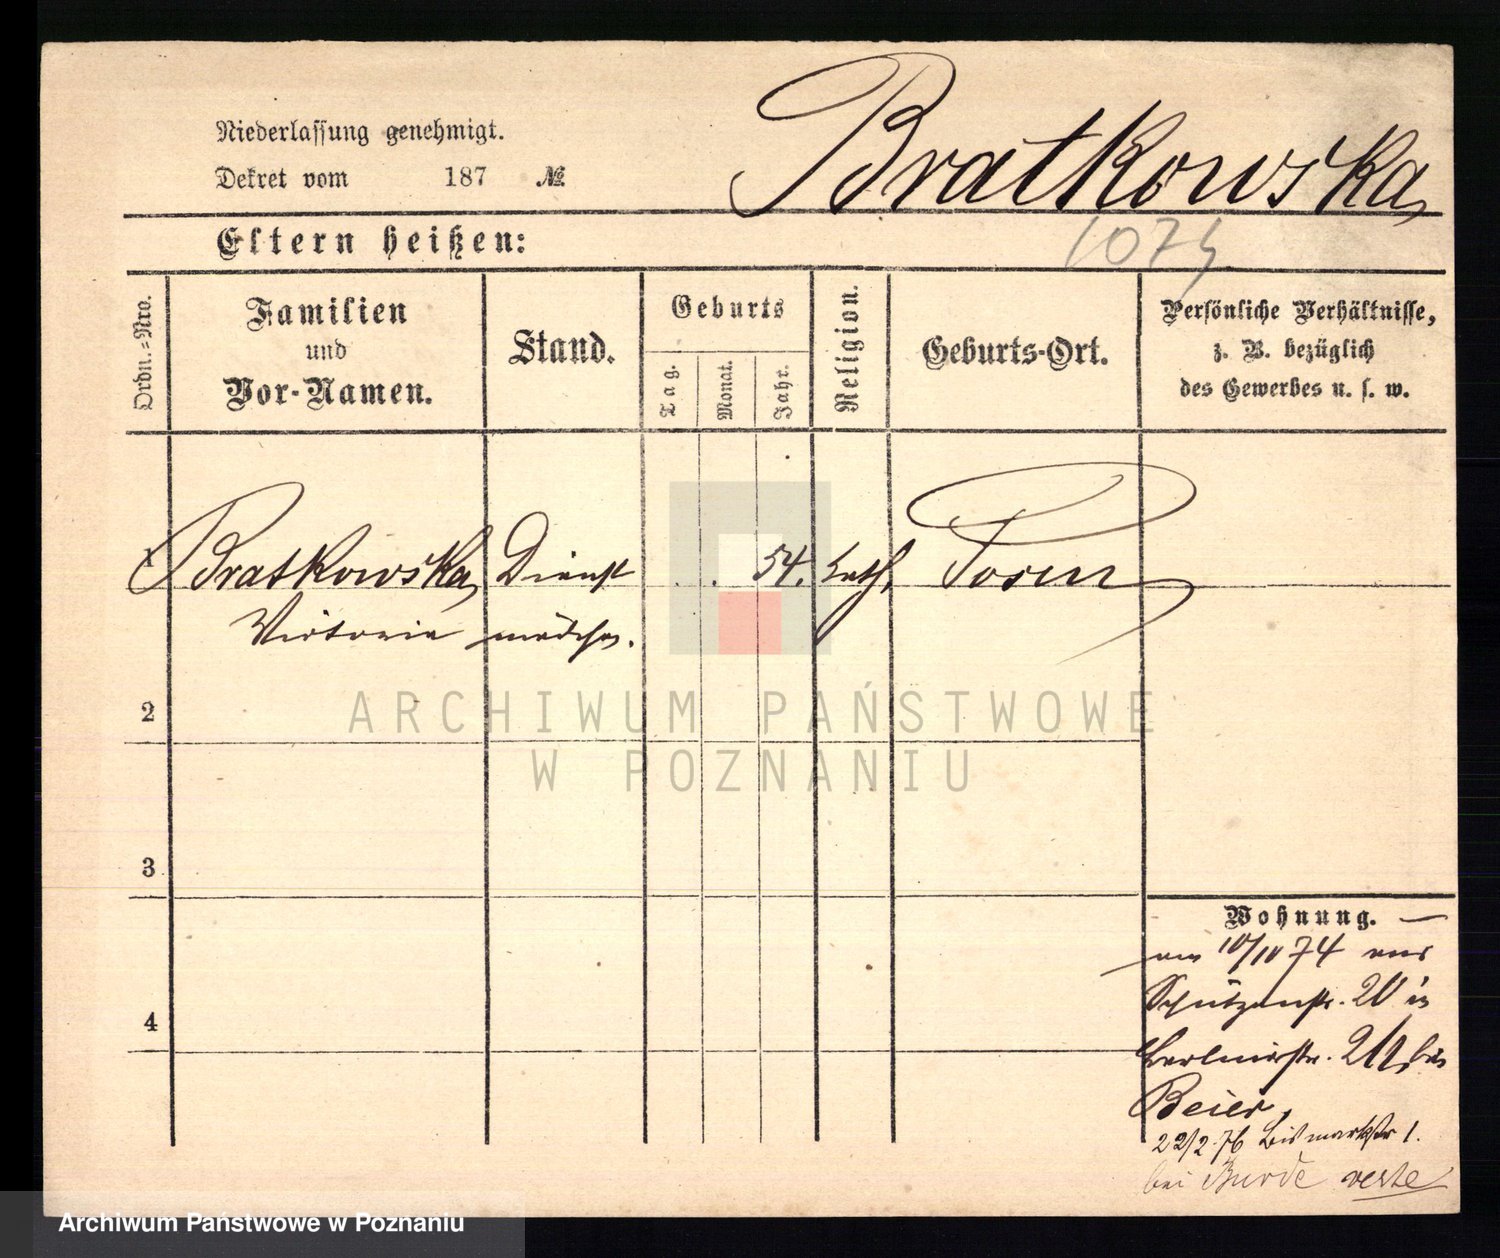 Bratkowska
Niederlassung genehmigt.
Dekret vom 187 №
Eltern heißen:
1074
Ordn.-Nro.
Familien
und
Vor-Namen.
Stand.
Geburts
Tag.
Monat.
Jahr.
Religion.
Geburts-Ort.
Persönliche Verhältnisse,
z. B. bezüglich
des Gewerbes u. s. w.
1 Bratkowska Dienst 54. kath. Posen
Victoria mädchen.
2
3
4
Wohnung.
am 10/10 74 aus
Schützenstr. 20 in
Berlinerstr. bei
Beier,
22/2 76 Bismarckstr 1.
bei
ARCHIWUM PAŃSTWOWE
W POZNANIU
Archiwum Państwowe w Poznaniu